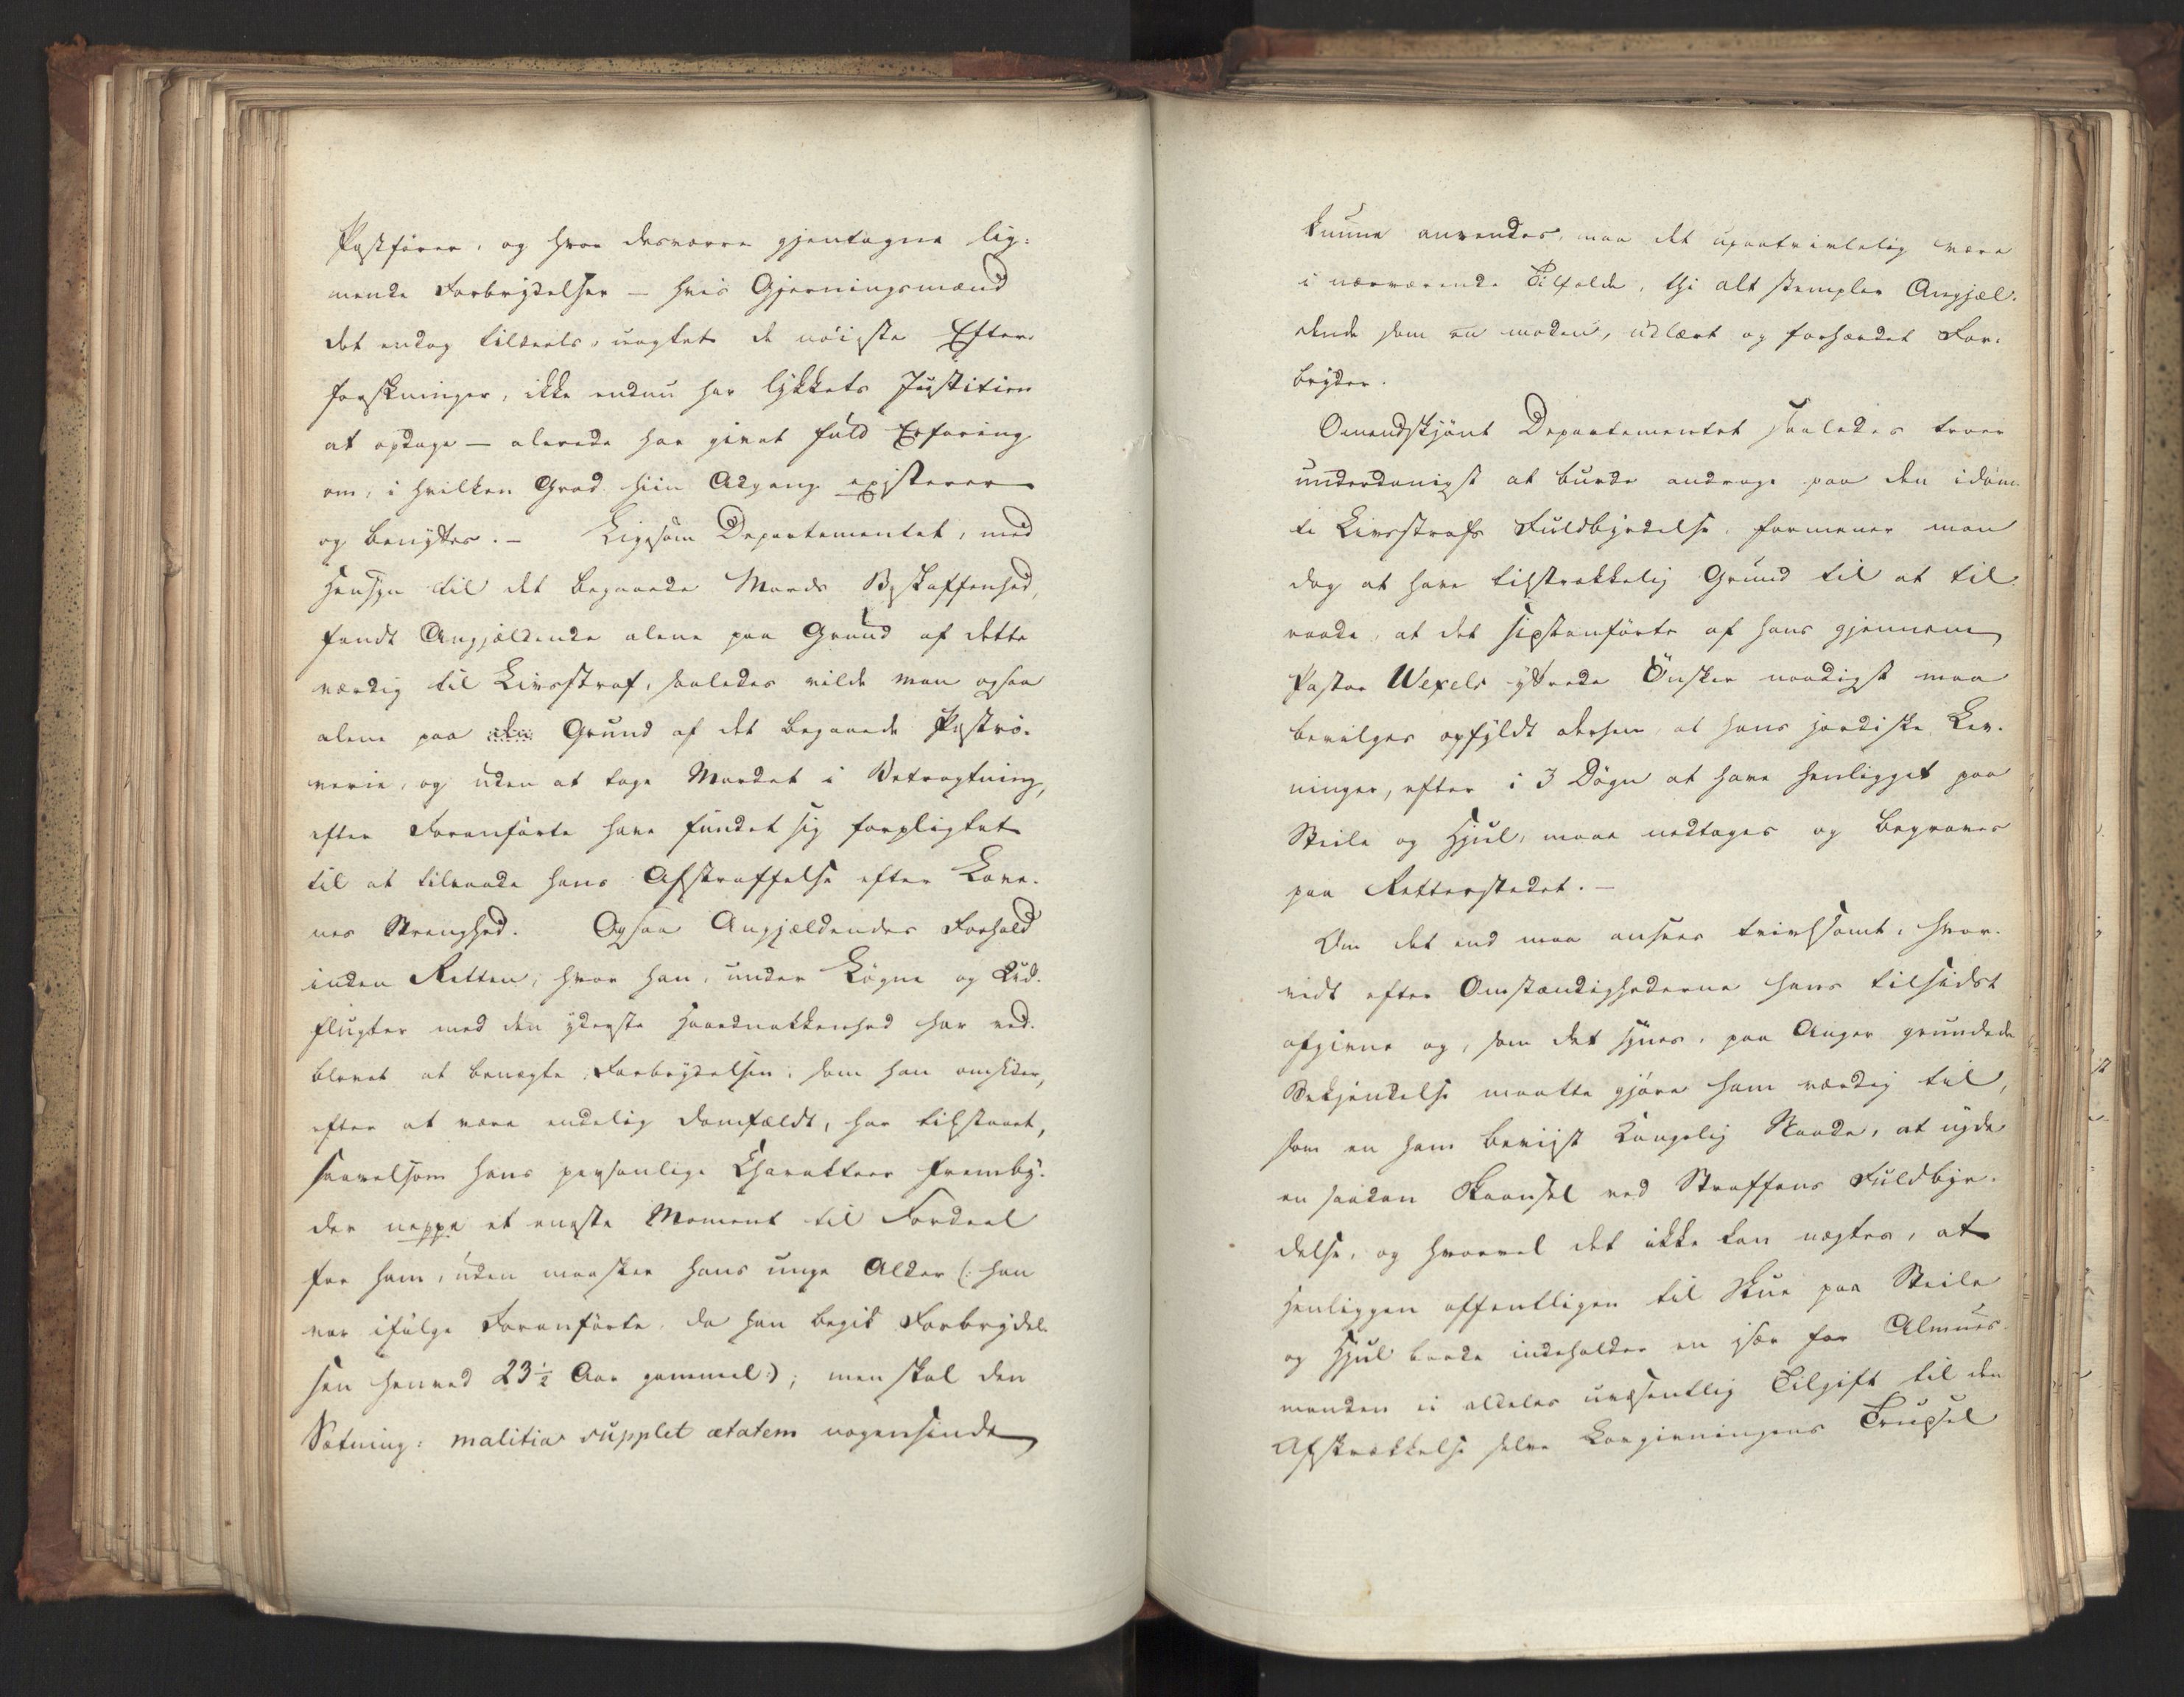 Postfører, og hvor desværre gjentagne lig-
nende Forbrydelser – hvis Gjerningsmænd
det endog tildeels, uagtet de nøieste Efter-
forskninger, ikke endnu har lykkets Justitien
at opdage – allerede har givet fuld Erfaring
om, i hvilken Grad hiin Adgang existerer
og benyttes. – Ligesom Departementet, med
Hensyn til det begaaede Mords Beskaffenhed,
fandt Angjældende alene paa Grund af dette
værdig til Livsstraf, saaledes vilde man ogsaa
alene paa den Grund af det begaaede Postrø-
verie, og uden at tage Mordet i Betragtning,
efter Foranførte have fundet sig forpligtet
til at tilraade hans Afstraffelse efter Love-
nes Strenghed. Ogsaa Angjældendes Forhold
inden Retten, hvor han, under Løgne og Ud-
flugter med den yderste Haardnakkenhed har ved-
blevet at benægte Forbrydelsen, som han omsider,
efter at være endelig domfældt, har tilstaaet,
saavelsom hans personlige Charakteer fremby-
der neppe et eneste Moment til Fordeel
for ham, uden maaskee hans unge Alder (: han
var ifølge Foranførte, da han begik Forbrydel-
sen henved 23½ Aar gammel :); men skal den
Sætning: malitia supplet ætatem nogensinde
kunne anvendes, maa det upaatvivlelig være
i nærværende Tilfælde, thi alt stempler Angjæl-
dende som en moden, udlært og forhærdet For-
bryder.
Omendskjønt Departementet saaledes troer
underdanigst at burde andrage paa den idøm-
te Livsstrafs Fuldbyrdelse, formener man
dog at have tilstrækkelig Grund til at til-
raade, at det sidstanførte af hans gjennem
Pastor Wexels yttrede Ønsker naadigst maa
bevilges opfyldt derhen, at hans jordiske Lev-
ninger, efter i 3 Døgn at have henligget paa
Steile og Hjul, maae nedtages og begraves
paa Retterstedet. –
Om det end maa ansees tvivlsomt, hvor-
vidt efter Omstændighederne hans tilsidst
afgivne og, som det synes, paa Anger grundede
Bekjendelse maatte gjøre ham værdig til,
som en ham beviist Kongelig Naade, at nyde
en saadan Skaansel ved Straffens Fuldbyr-
delse, og hvorvel det ikke kan nægtes, at
Henliggen offentligen til Skue paa Steile
og Hjul burde indeholder en især for Almues-
manden ei aldeles uvæsentlig Tilgift til den
Afskrækkelse selve Lovgivningens Trudsel